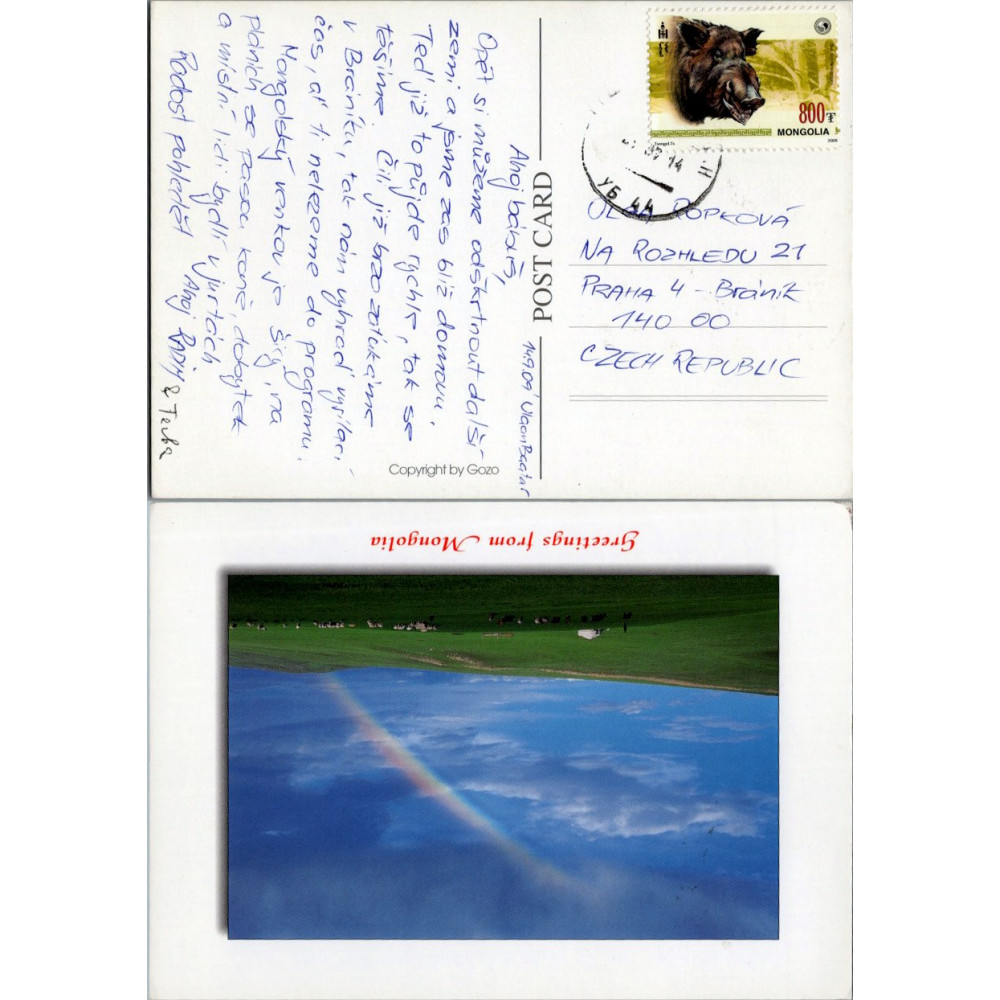 14.9.09 UlaanBaatar
Ahoj babi,
Opět si můžeme odškrtnout další
zemi a jsme zas blíž domovu.
Teď již to půjde rychle, tak se
těšíme. Čili již brzo zatukáme
v Braníku, tak nám vyhraď vysílací
čas, ať ti nelezeme do programu.
Mongolský venkov je širý, na
pláních se pasou koně, dobytek
a místní lidi bydlí v jurtách
Radost pohledět Ahoj RADIM
& Terka
POST CARD
Copyright by Gozo
800₮
MONGOLIA
2009
14
УБ 44
OLGA ROPKOVÁ
NA ROZHLEDU 21
PRAHA 4 - Bránik
140 00
CZECH REPUBLIC
Greetings from Mongolia